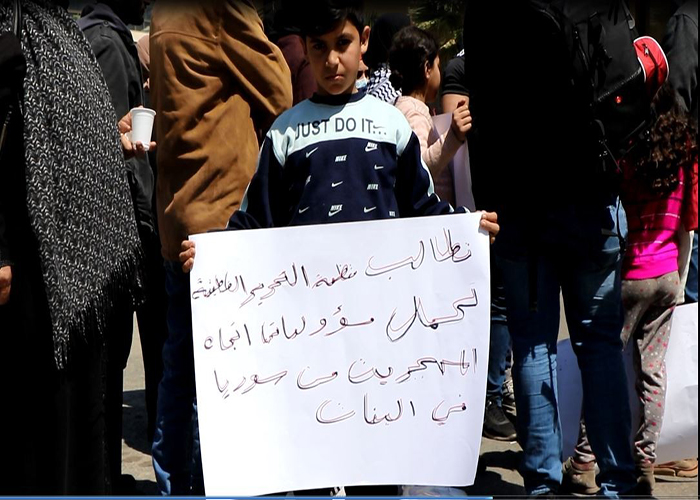 JUST DO IT...
NIKE
NIKE
NIKE
NIKE
نطالب منظمة التحرير الفلسطينية
لتحمل مسؤولياتها اتجاه
المهجرين من سوريا
في البنان